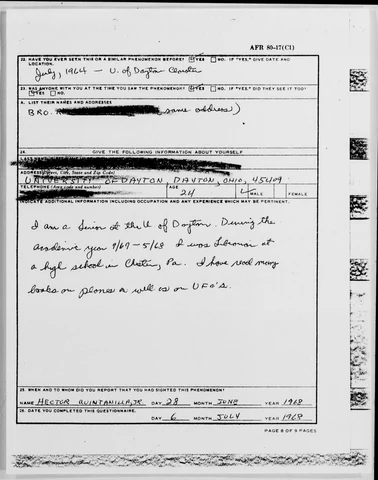 AFR 80-17(C1)
22. HAVE YOU EVER SEEN THIS OR A SIMILAR PHENOMENON BEFORE? YES NO. IF "YES," GIVE DATE AND
LOCATION.
July, 1964 – U. of Dayton
23. WAS ANYONE WITH YOU AT THE TIME YOU SAW THE PHENOMENON? YES NO. IF "YES," DID THEY SEE IT TOO?
YES NO.
A. LIST THEIR NAMES AND ADDRESSES
BRO. same address)
24. GIVE THE FOLLOWING INFORMATION ABOUT YOURSELF
ADDRESS (Street, City, State and Zip Code)
UNIVERSITY OF DAYTON, DAYTON, OHIO, 45409
TELEPHONE (Area code and number) AGE 24 MALE FEMALE
INDICATE ADDITIONAL INFORMATION INCLUDING OCCUPATION AND ANY EXPERIENCE WHICH MAY BE PERTINENT.
I am a at the U of Dayton. During the
academic year 9/67 – 5/68 I was Librarian at
a high school in Chester, Pa. I have read many
books on planes as well as on UFO's.
25. WHEN AND TO WHOM DID YOU REPORT THAT YOU HAD SIGHTED THIS PHENOMENON?
NAME HECTOR QUINTANILLA, JR. DAY 28 MONTH JUNE YEAR 1968
26. DATE YOU COMPLETED THIS QUESTIONNAIRE.
DAY 6 MONTH JULY YEAR 1968
PAGE 8 OF 9 PAGES